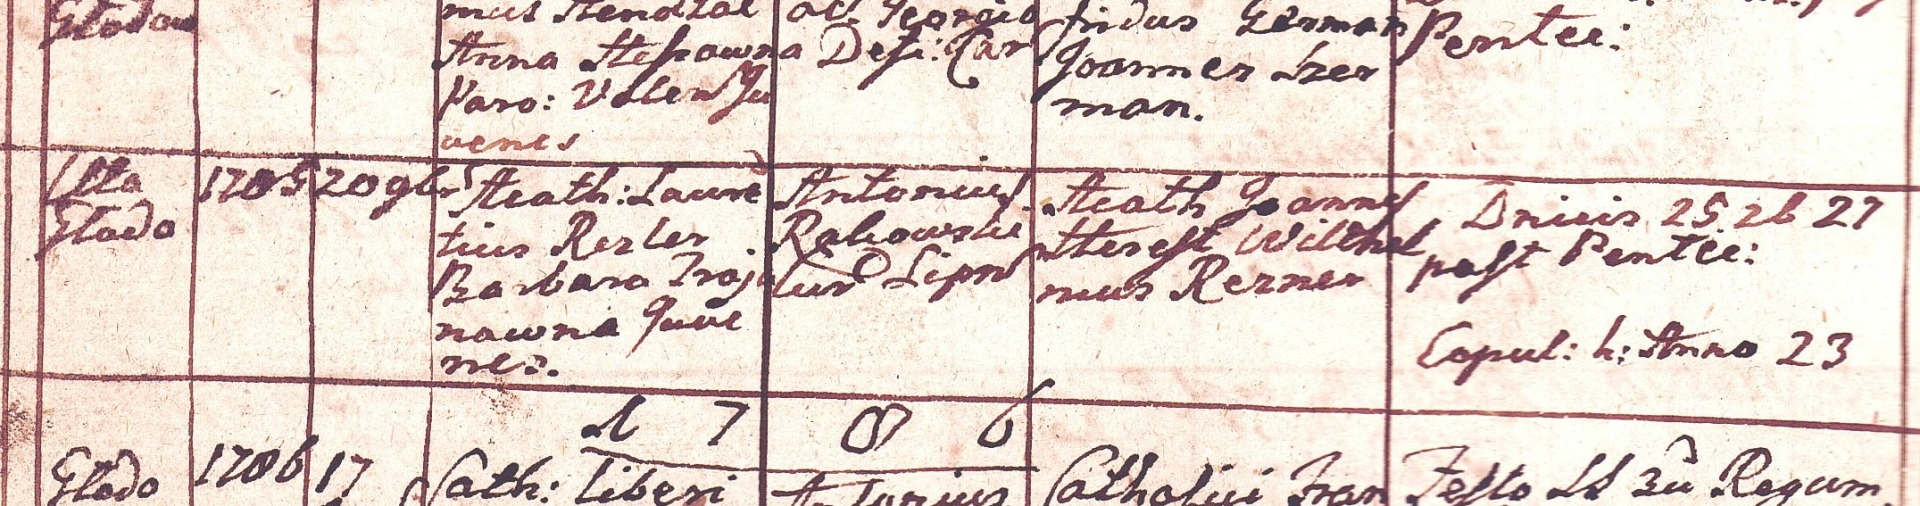 Glodow
Anna
Paro:
venes
ad Georgio
Desi: Car
fridus German
Joannes Szer
man.
Pentec:
Olla
Glodo
1785
20 9br
Acath: Laure
tius Rezler
Barbara Troja
nowna Juve
nes.
Antonius
Rakowski
Cur Lipn
Acath Joannes
Wilhel
mus Rezner
Dnicis 25 26 27
post Pentec:
Copul: h: Anno 23
1 7 8 6
Glodo
1786
17
Cath: liberi
Antonius
Catholici Fran
Festo SS 3u Regum